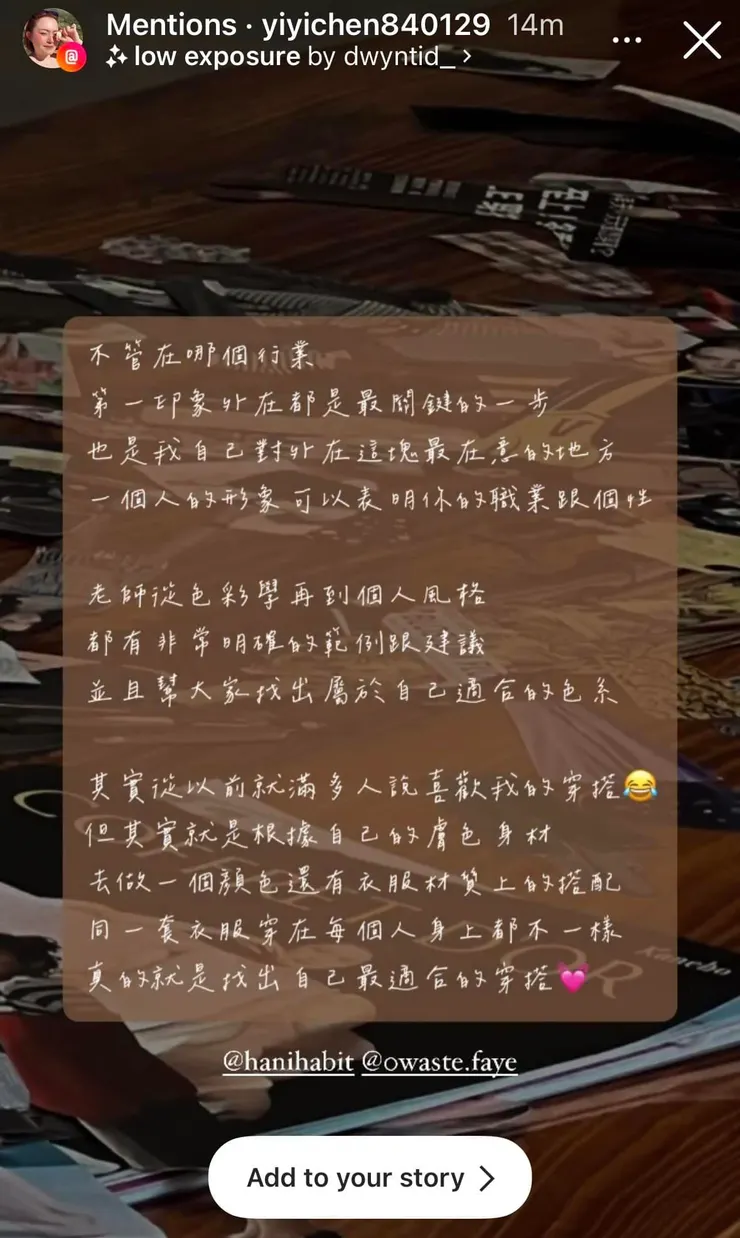 Mentions · yiyichen840129 14m
low exposure by dwyntid_ >
不管在哪個行業
第一印象外在都是最關鍵的一步
也是我自己對外在這塊最在意的地方
一個人的形象可以表明你的職業跟個性
老師從色彩學再到個人風格
都有非常明確的範例跟建議
並且幫大家找出屬於自己適合的色系
其實從以前就滿多人說喜歡我的穿搭😂
但其實就是根據自己的膚色身材
去做一個顏色還有衣服材質上的搭配
同一套衣服穿在每個人身上都不一樣
真的就是找出自己最適合的穿搭💓
Kanebo
@hanihabit @owaste.faye
Add to your story >